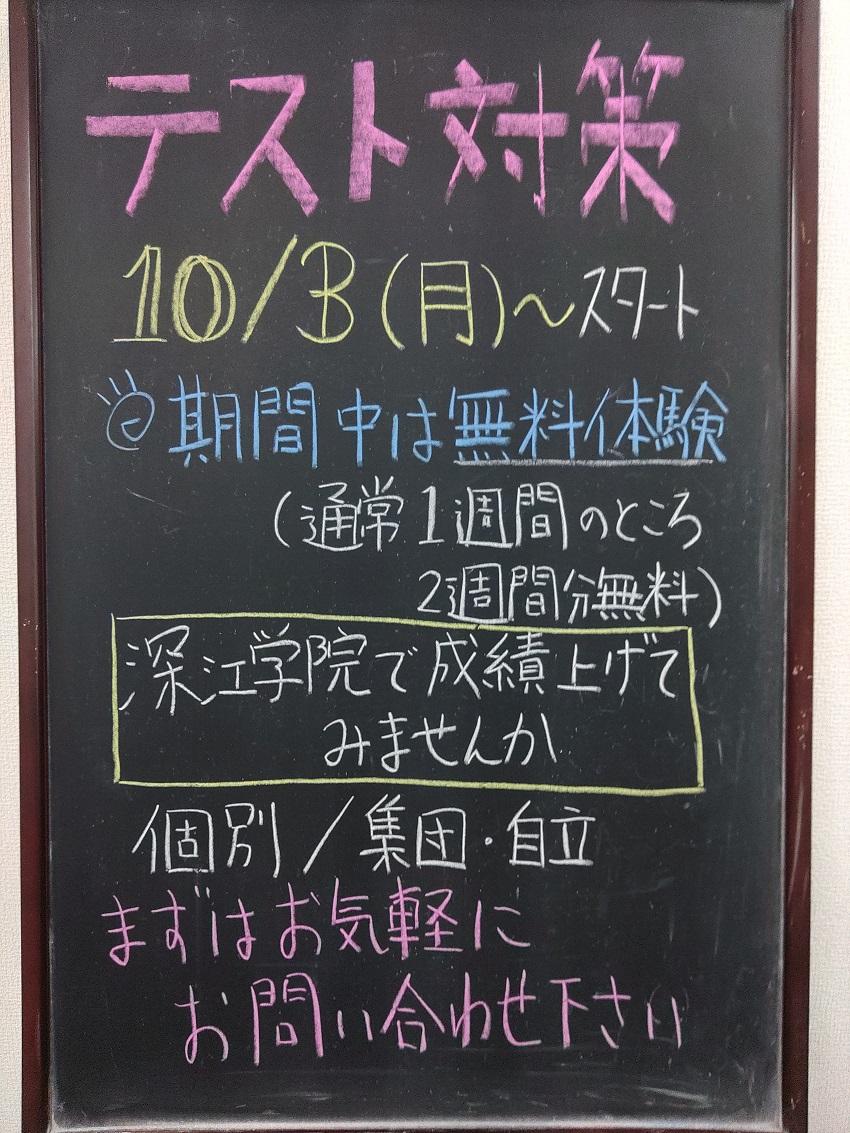 テスト対策
10/3(月)～スタート
期間中は無料体験
(通常1週間のところ
2週間分無料)
深江学院で成績上げて
みませんか
個別/集団・自立
まずはお気軽に
お問い合わせ下さい